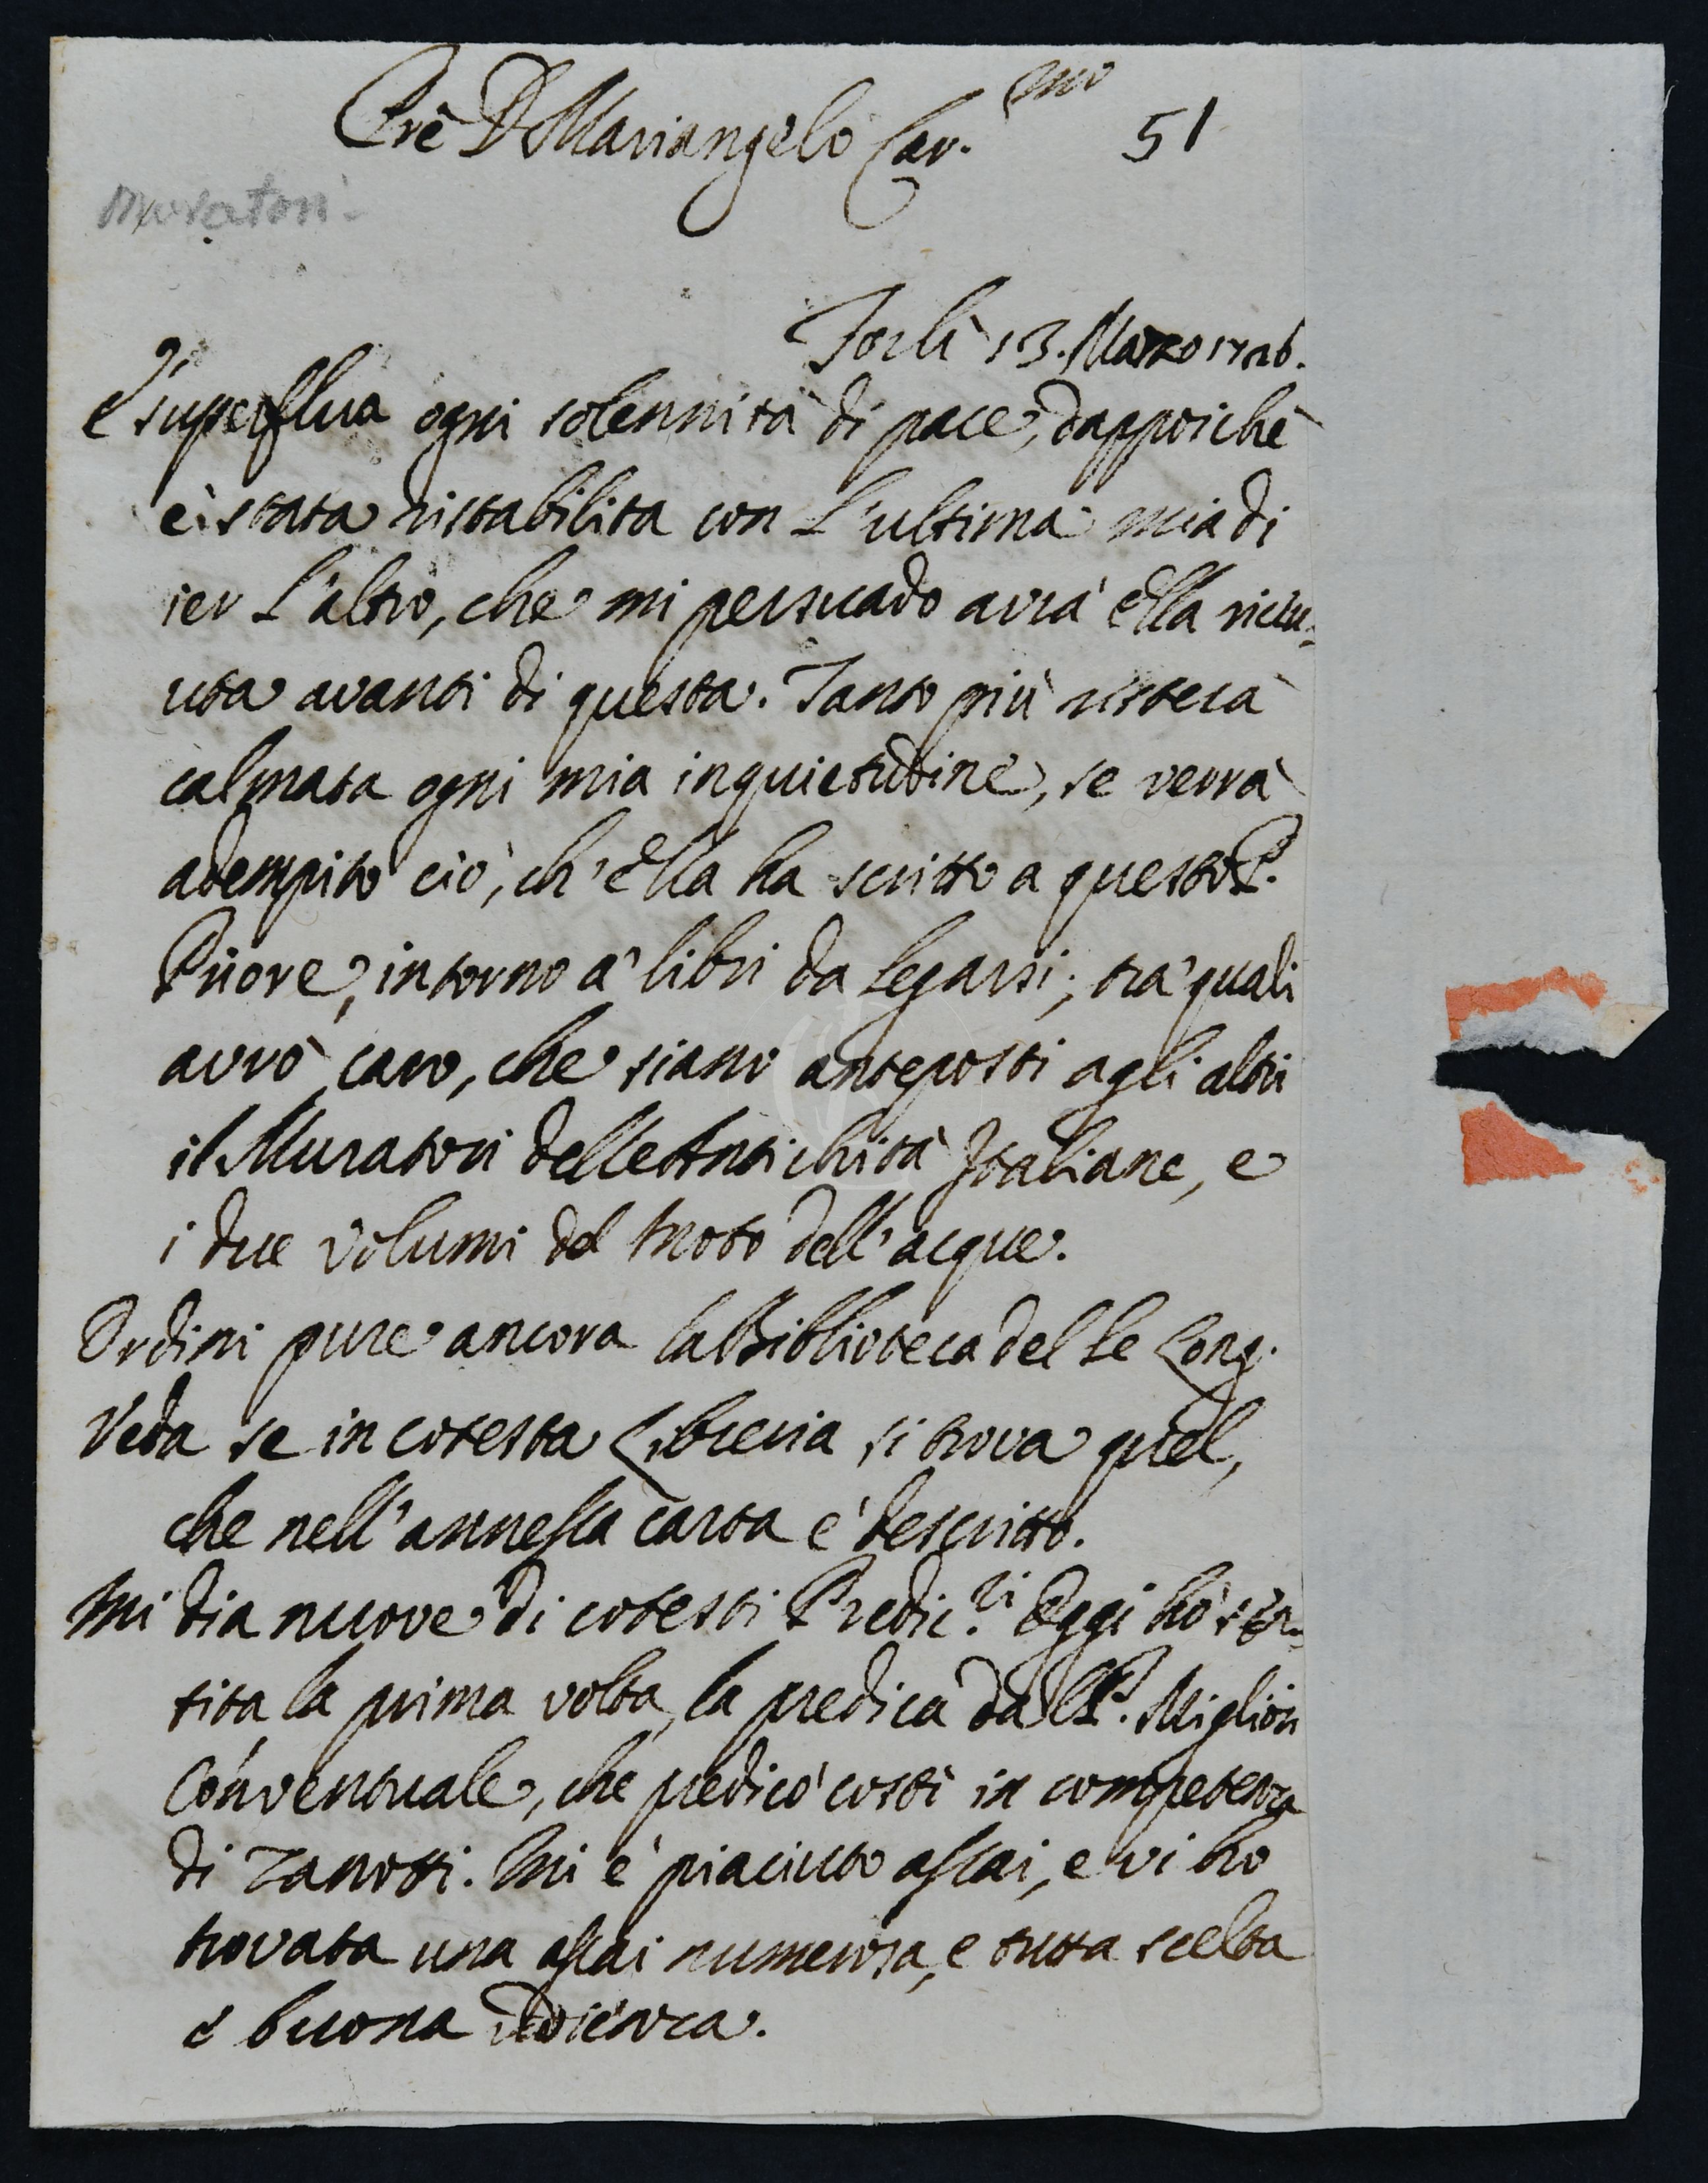 Prē D Mariangelo Car.mo 51
Muratori
Forlì 13. Marzo 1726.
È superflua ogni solennità di pace, dappoichè
è stata ristabilita con L'ultima mia di
ier L'altro, che mi persuado avrà ella riceu-
uta avanti di questa. Tanto più resterà
calmata ogni mia inquietudine, se verrà
adempito ciò, ch'ella ha scritto a questo P.
Priore, intorno a' libri da legarsi; tra' quali
avrò caro, che siano anteposti agli altri
il Muratori delle Antichità Italiane, e
i due volumi del moto dell'acque.
Ordini pure ancora la Biblioteca del le Long.
Veda se in cotesta Libreria si trova quel,
che nell'annessa carta è descritto.
Mi dia nuove di cotesti Predic.ri Oggi hò sen-
tita la prima volta la predica dal P. Migliori
Conventuale, che predicò costì in competenza
di Zanotti. Mi è piaciuto assai, e vi ho
trovata una assai numerosa, e tutta scelta
e buona udienza.